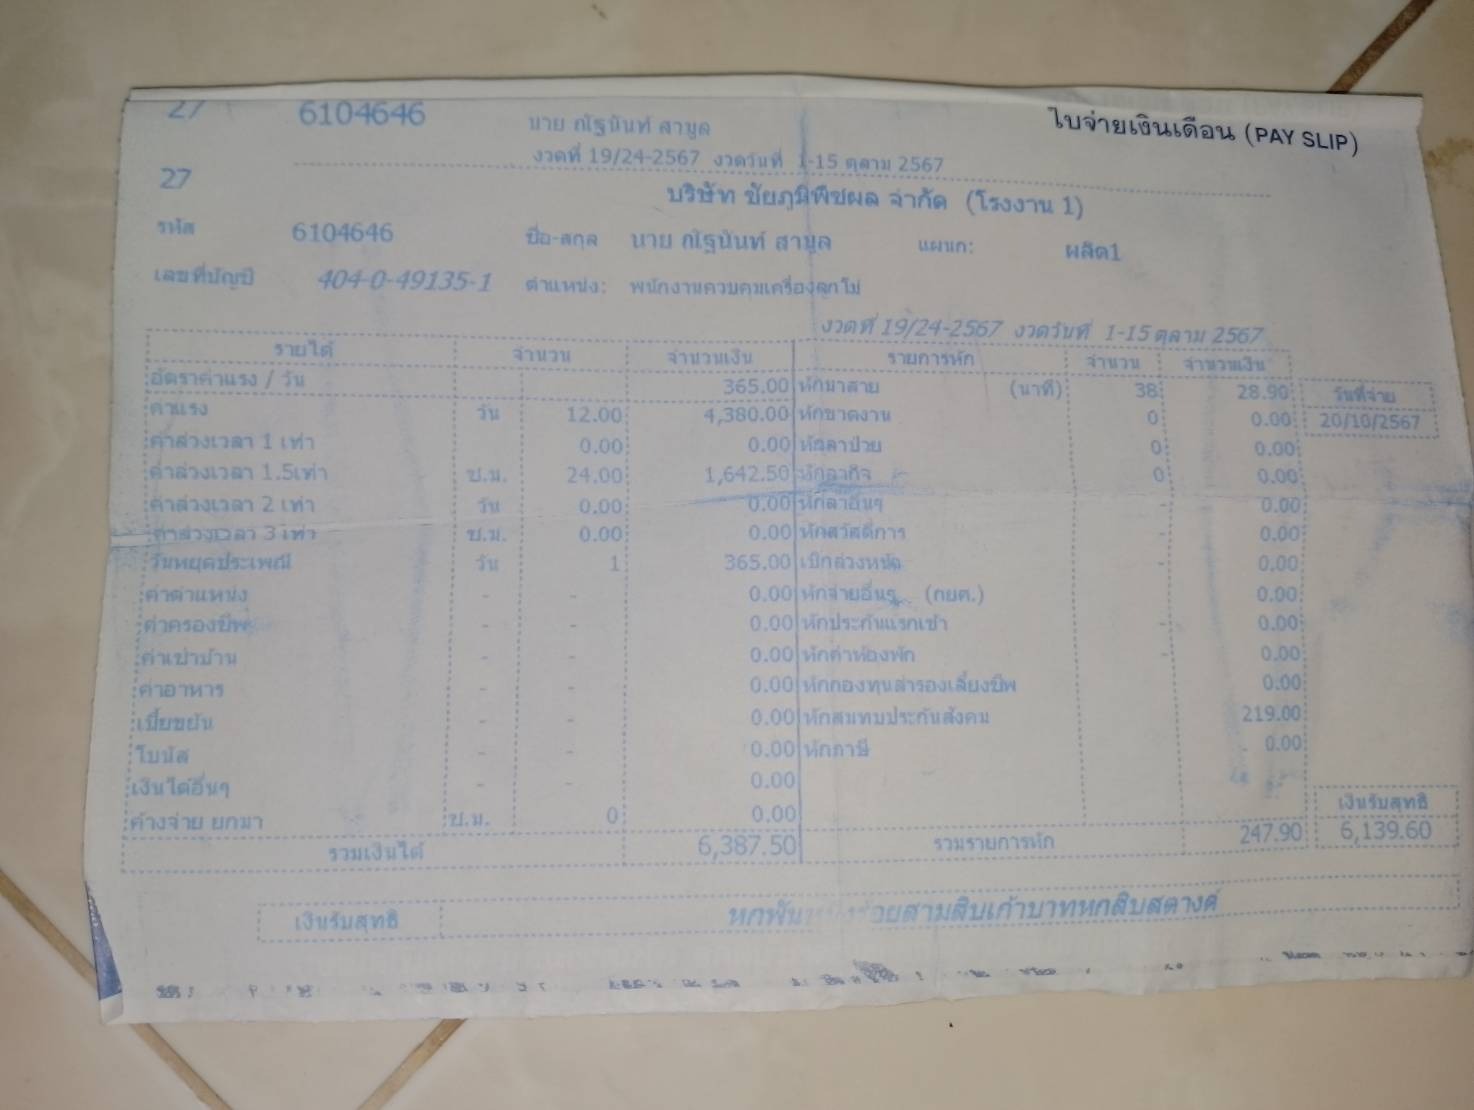 27 6104646 นาย ณัฐนันท์ สามูล ใบจ่ายเงินเดือน (PAY SLIP)
งวดที่ 19/24-2567 งวดวันที่ 1-15 ตุลาม 2567
27 บริษัท ชัยภูมิพืชผล จำกัด (โรงงาน 1)
รหัส 6104646 ชื่อ-สกุล นาย ณัฐนันท์ สามูล แผนก: ผลิต1
เลขที่บัญชี 404-0-49135-1 ตำแหน่ง: พนักงานควบคุมเครื่องลูกโม่
งวดที่ 19/24-2567 งวดวันที่ 1-15 ตุลาม 2567
รายได้ จำนวน จำนวนเงิน รายการหัก จำนวน จำนวนเงิน
อัตราค่าแรง / วัน 365.00 หักมาสาย (นาที) 38 28.90 วันที่จ่าย
ค่าแรง วัน 12.00 4,380.00 หักขาดงาน 0 0.00 20/10/2567
ค่าล่วงเวลา 1 เท่า 0.00 0.00 หักลาป่วย 0 0.00
ค่าล่วงเวลา 1.5เท่า ช.ม. 24.00 1,642.50 หักลากิจ 0 0.00
ค่าล่วงเวลา 2 เท่า วัน 0.00 0.00 หักลาอื่นๆ - 0.00
ค่าล่วงเวลา 3 เท่า ช.ม. 0.00 0.00 หักสวัสดิการ - 0.00
วันหยุดประเพณี วัน 1 365.00 เบิกล่วงหน้า - 0.00
ค่าตำแหน่ง - - 0.00 หักจ่ายอื่นๆ (กยศ.) 0.00
ค่าครองชีพ - - 0.00 หักประกันแรกเข้า - 0.00
ค่าเช่าบ้าน - - 0.00 หักค่าห้องพัก - 0.00
ค่าอาหาร - - 0.00 หักกองทุนสำรองเลี้ยงชีพ 0.00
เบี้ยขยัน - - 0.00 หักสมทบประกันสังคม 219.00
โบนัส - - 0.00 หักภาษี 0.00
เงินได้อื่นๆ - - 0.00
ค้างจ่าย ยกมา ช.ม. 0 0.00 เงินรับสุทธิ
รวมเงินได้ 6,387.50 รวมรายการหัก 247.90 6,139.60
เงินรับสุทธิ หกพัน ร้อยสามสิบเก้าบาทหกสิบสตางค์